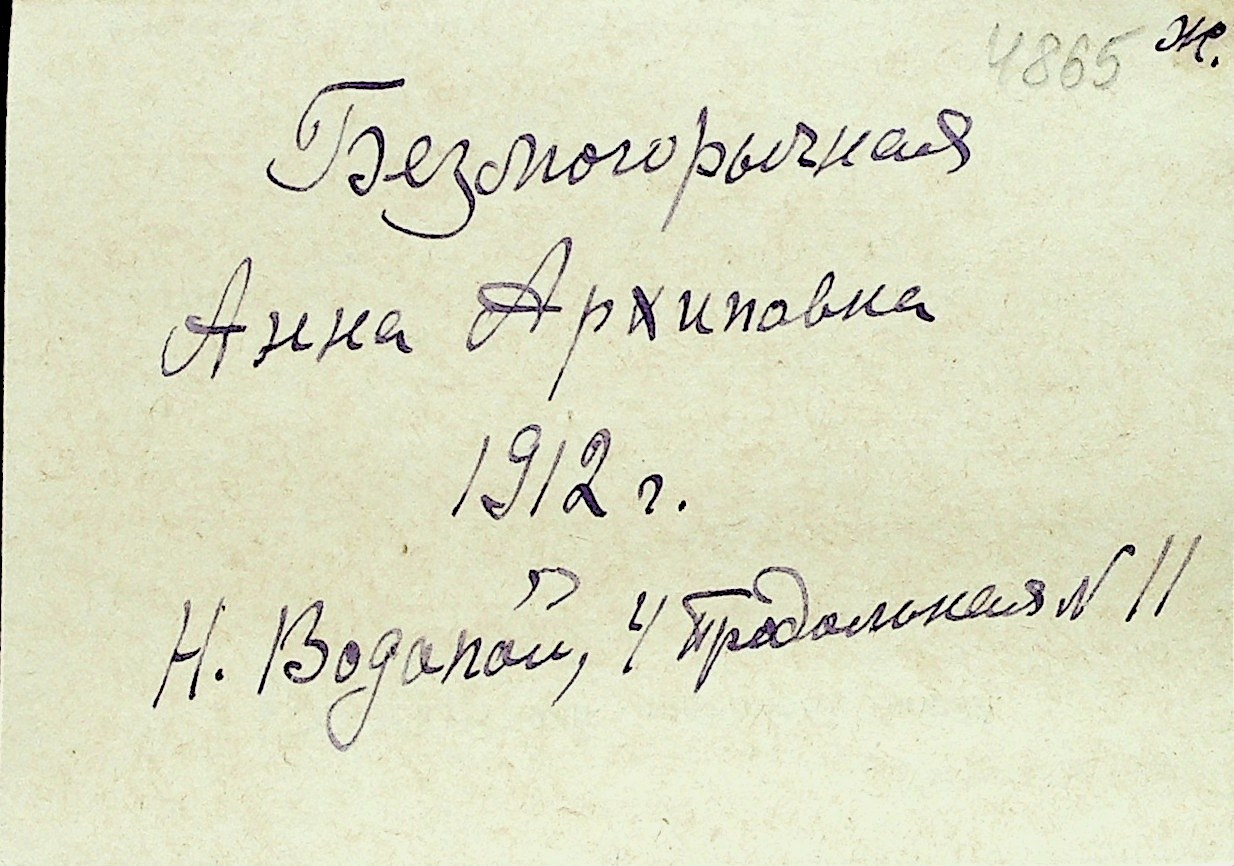 4865 ж.
Безмогорычная
Анна Архиповна
1912 г.
Н. Водопой, 4 Продольная N 11